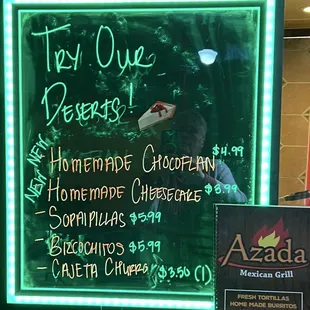 Try Our
Deserts!
New New
Homemade Chocoflan $4.99
Homemade Cheesecake $3.99
- Sopaipillas $5.99
- Bizcochitos $5.99
- Cajeta Churro $3.50 (1)
Azada
Mexican Grill
FRESH TORTILLAS
HOME MADE BURRITOS